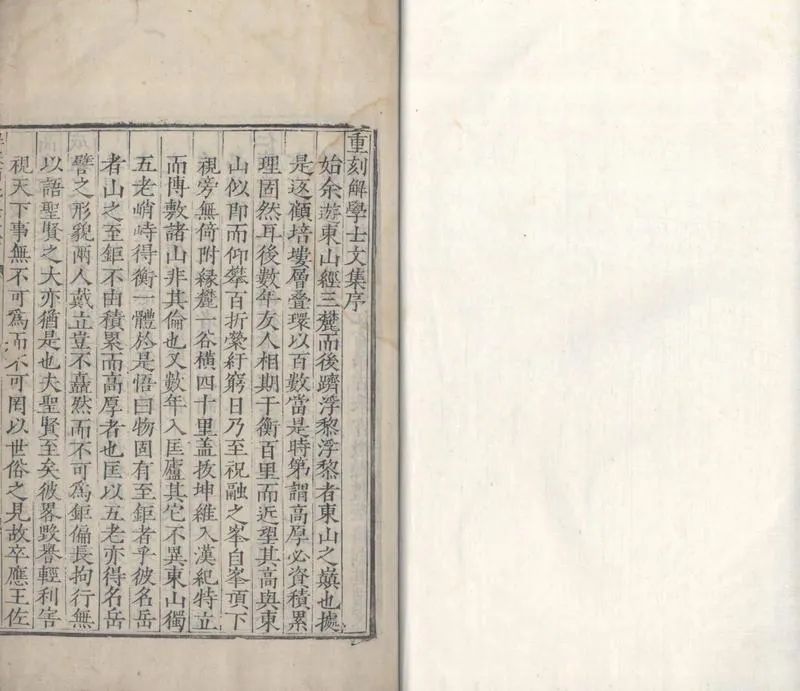 重刻解學士文集序
始余遊東山經三麓而後躋浮黎浮黎者東山之巔也據
是返顧培塿層疊環以百數當是時第謂高厚必資積累
理固然耳後數年友人相期于衡百里而近望其高與東
山似即而仰攀百折縈紆窮日乃至祝融之峯自峯頂下
視旁無倚附緣麓一谷橫四十里盖拔坤維入漢紀特立
而傳敷諸山非其倫也又數年入匡廬其它不異東山獨
五老峭峙得衡一體於是悟曰物固有至鉅者乎彼名岳
者山之至鉅不由積累而高厚者也匡以五老亦得名岳
譬之形貌兩人戴立豈不矗然而不可爲鉅偏長拘行無
以語聖賢之大亦猶是也夫聖賢至矣彼畧毀譽輕利害
視天下事無不可爲而不可罔以世俗之見故卒應王佐